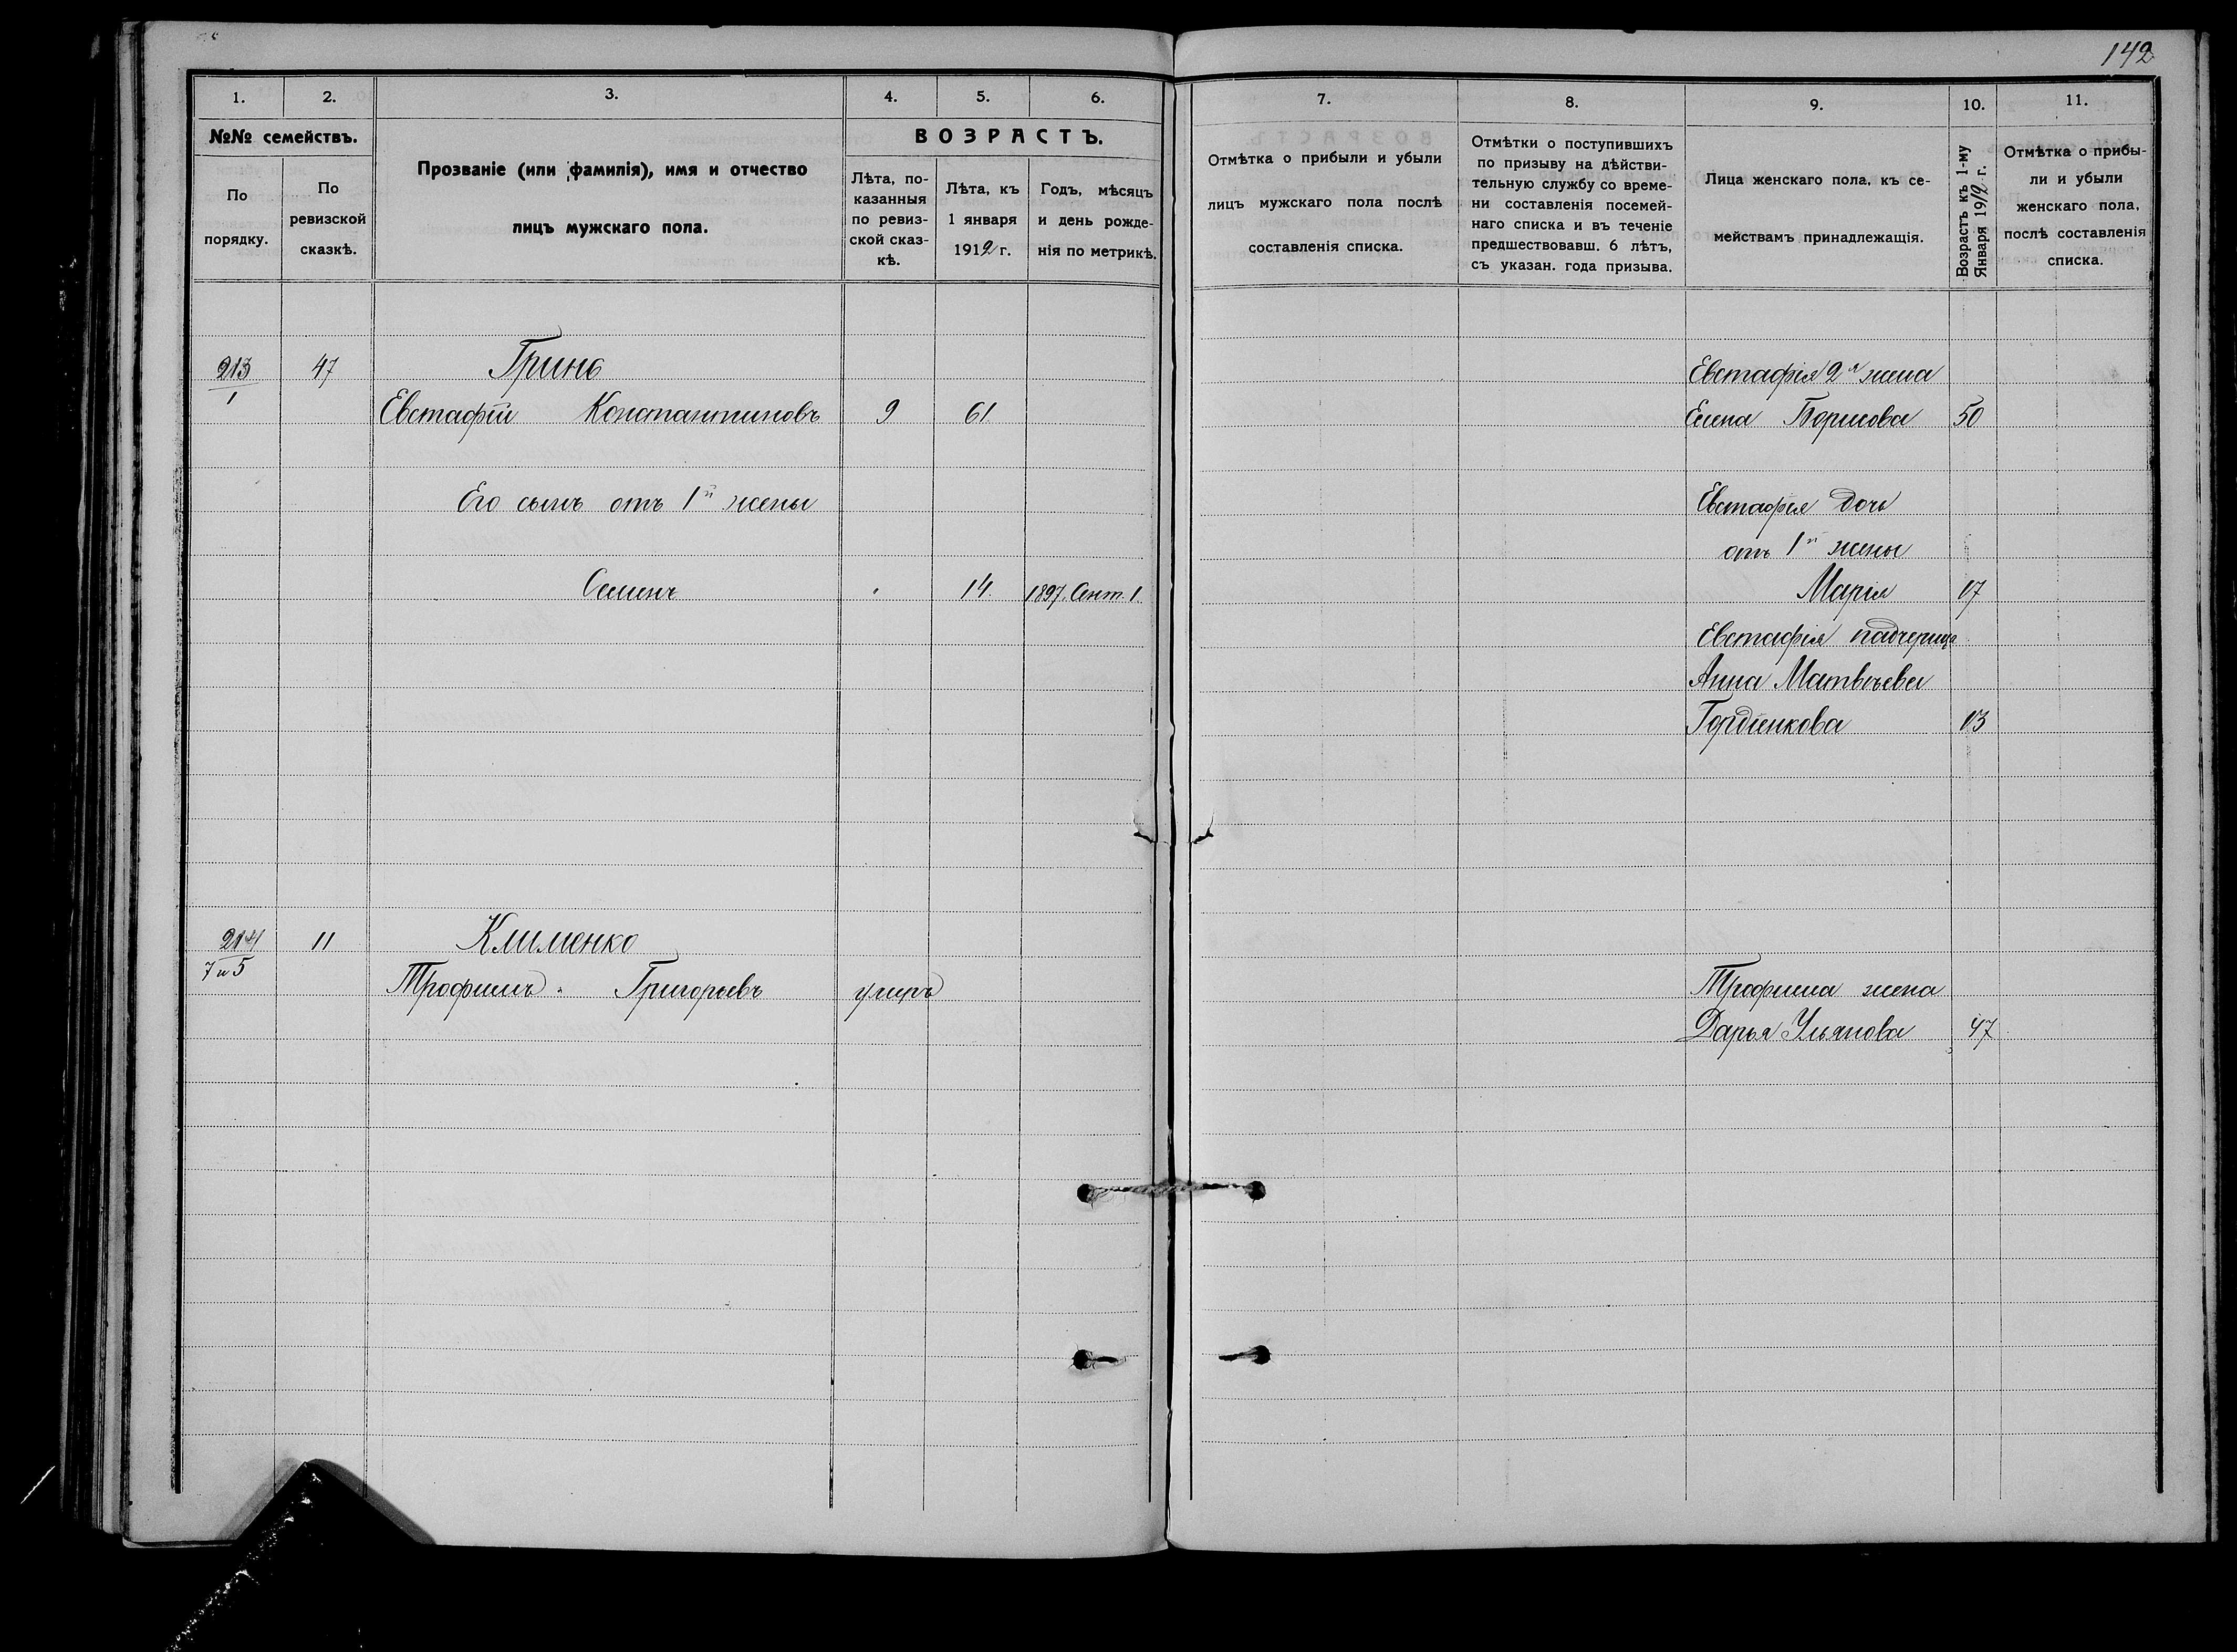 142
1. 2. 3. 4. 5. 6.
№№ семействъ.
По порядку.
По ревизской сказкѣ.
Прозваніе (или фамилія), имя и отчество
лицъ мужскаго пола.
ВОЗРАСТЪ.
Лѣта, по-
казанныя
по ревиз-
ской сказ-
кѣ.
Лѣта, къ
1 января
1912 г.
Годъ, мѣсяцъ
и день рожде-
нія по метрикѣ.
213 47 Гринь
1
Евстафій Константиновъ 9 61
Его сынъ отъ 1й жены
Семенъ " 14 1897. Сент. 1.
214 11 Клименко
7 и 5
Трофимъ Григорьевъ умеръ
7. 8. 9. 10. 11.
Отмѣтка о прибыли и убыли
лицъ мужскаго пола послѣ
составленія списка.
Отмѣтки о поступившихъ
по призыву на дѣйстви-
тельную службу со време-
ни составленія посемей-
наго списка и въ теченіе
предшествовавш. 6 лѣтъ,
съ указан. года призыва.
Лица женскаго пола, къ се-
мействамъ принадлежащія.
Возрастъ къ 1-му
Января 1912 г.
Отмѣтка о прибы-
ли и убыли
женскаго пола,
послѣ составленія
списка.
Евстафія 2я жена
Елена Борисова 50
Евстафія дочь
отъ 1й жены
Марія 17
Евстафія падчерица
Анна Матвѣева
Гордіенкова 13
Трофима жена
Дарья Ульянова 47